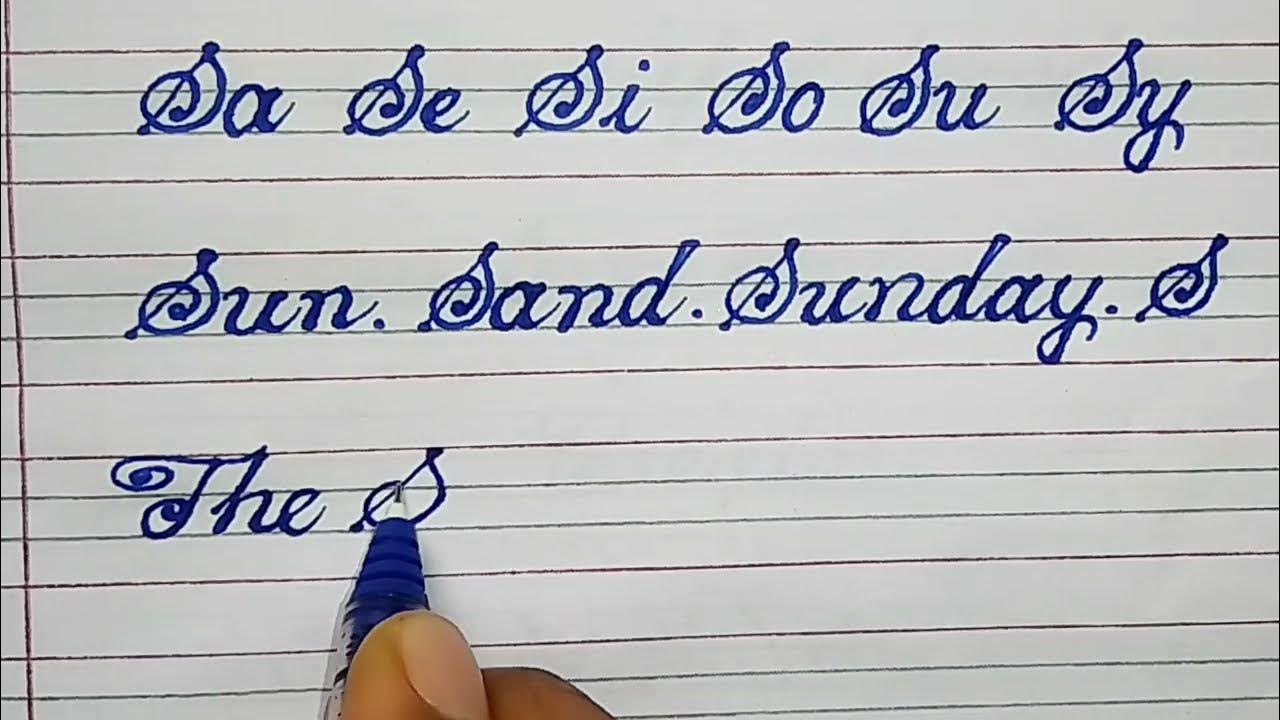 Sa Se Si So Su Sy
Sun. Sand. Sunday. S
The S